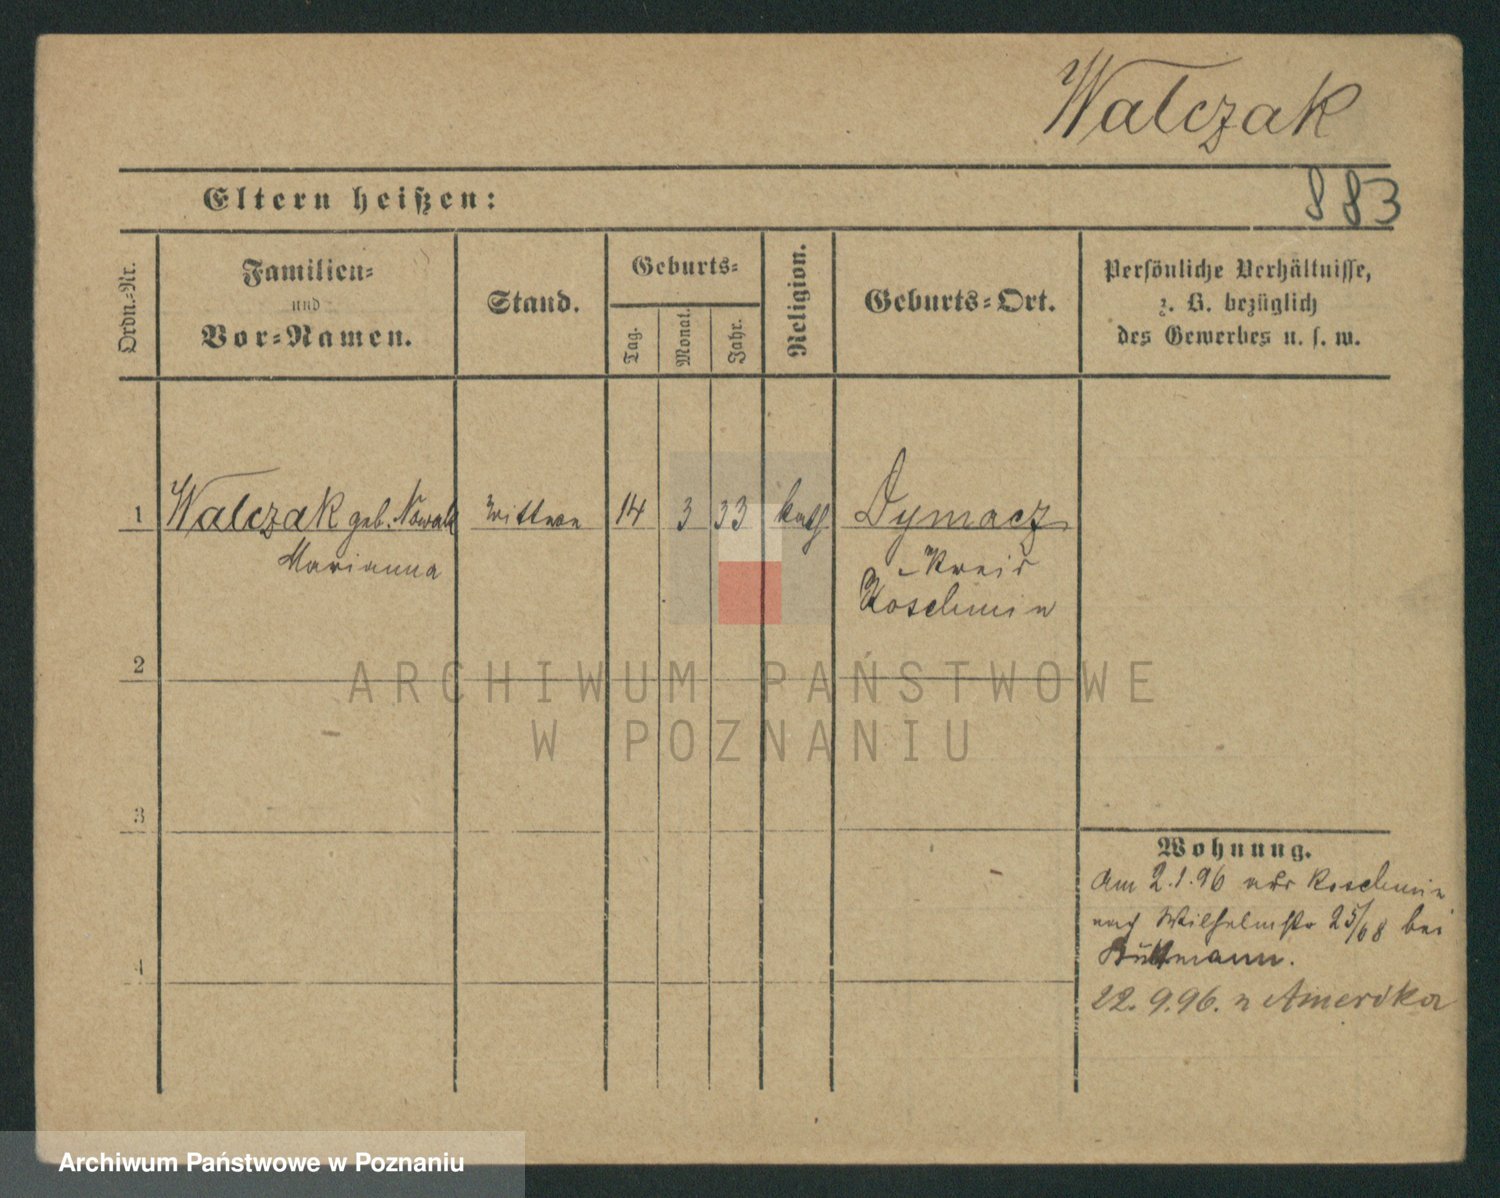 Walczak
883
Eltern heißen:
Ordn.-Nr.
Familien-
und
Vor-Namen.
Stand.
Geburts-
Tag.
Monat.
Jahr.
Religion.
Geburts-Ort.
Persönliche Verhältnisse,
z. B. bezüglich
des Gewerbes u. s. w.
1 Walczak geb. Nowak Wittwe 14 3 33 kath Dymacz
Marianna Kreis
Koschmin
2
ARCHIWUM PAŃSTWOWE
W POZNANIU
3
Wohnung.
Am 2.1.96 aus Koschmin
nach Wilhelmstr 25/68 bei
4
22.9.96. n Amerika
Archiwum Państwowe w Poznaniu